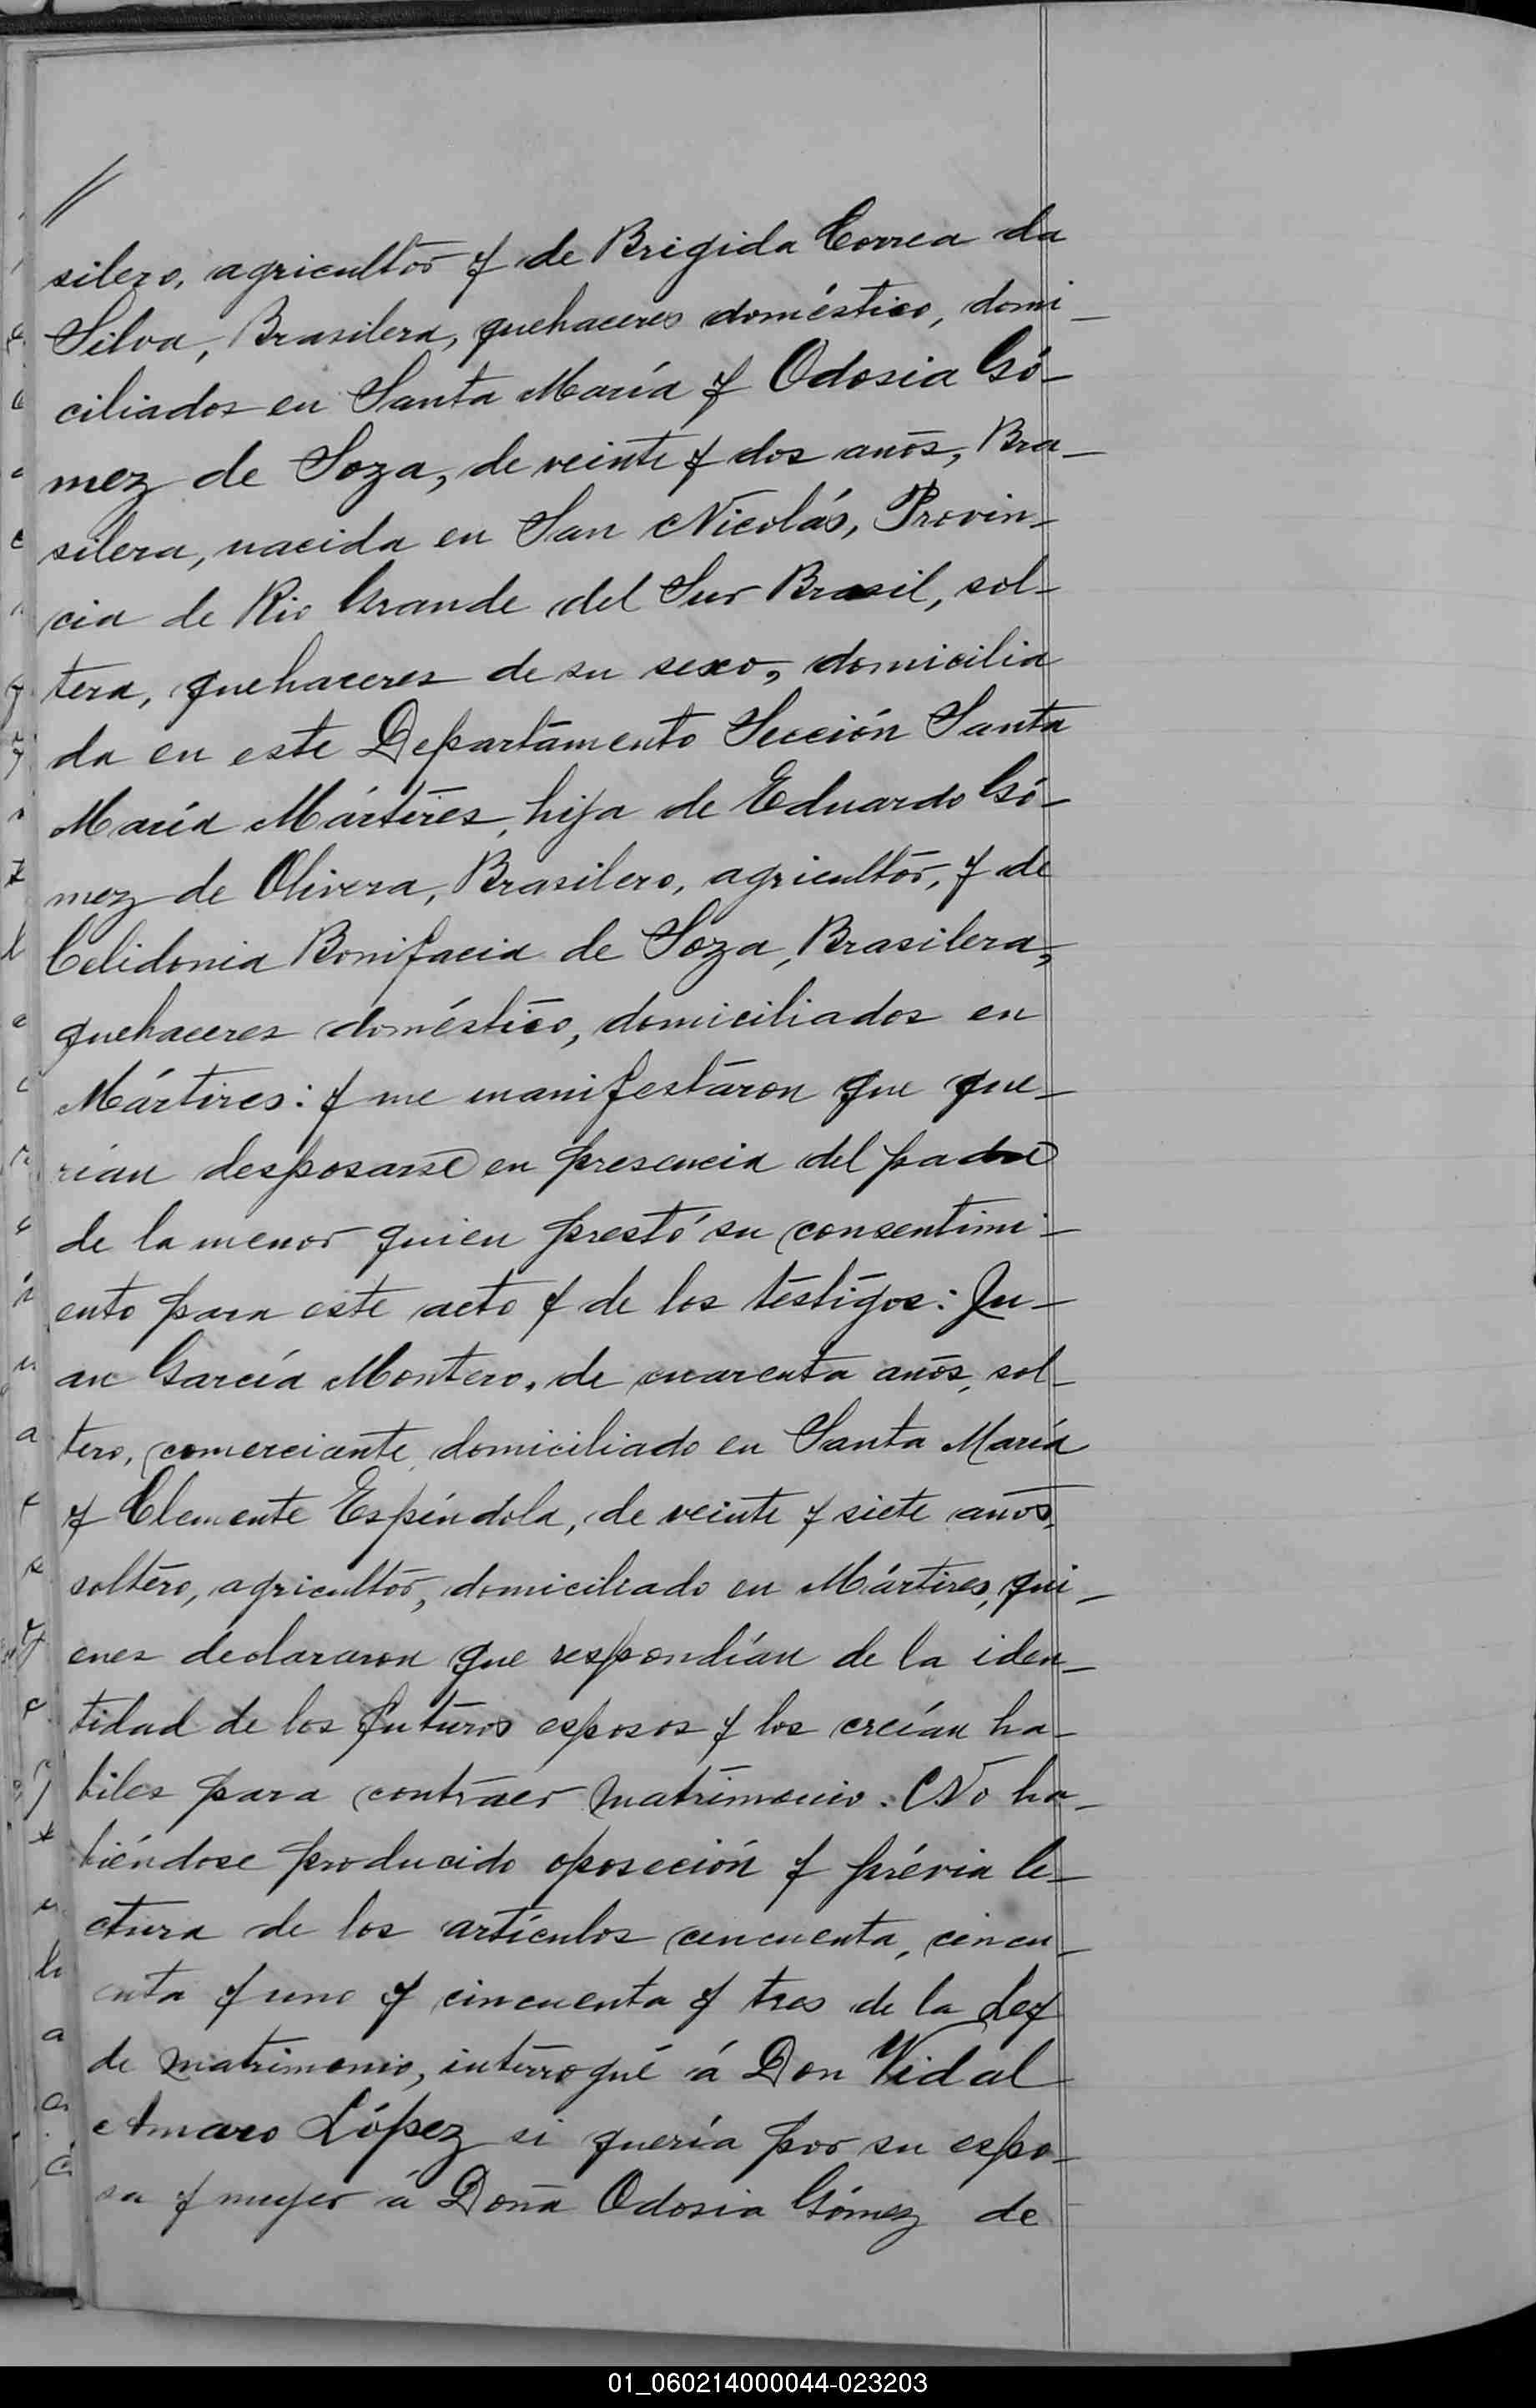 //
silero, agricultor y de Brigida Correa da
Silva, Brasilera, quehaceres doméstico, domi_
ciliados en Santa María y Odosia Gó_
mez de Soza, de veinte y dos años, Bra_
silera, nacida en San Nicolás, Provin_
cia de Rio Grande del Sur Brasil, sol_
tera, quehaceres de su sexo, domicilia
da en este Departamento Sección Santa
María Mártires, hija de Eduardo Gó_
mez de Olivera, Brasilero, agricultor, y de
Celidonia Bonifacia de Soza, Brasilera,
quehaceres doméstico, domiciliados en
Mártires: y me manifestaron que que_
rían desposarse en presencia del padre
de la menor quien prestó su consentimi_
ento para este acto y de los testigos: Ju_
an García Montero, de cuarenta años, sol_
tero, comerciante, domiciliado en Santa María
y Clemente Espíndola, de veinte y siete años,
soltero, agricultor, domiciliado en Mártires, qui_
enes declararon que respondían de la iden_
tidad de los futuros esposos y los creían ha_
biles para contraer matrimonio. No ha_
biéndose producido oposeción y prévia le_
ctura de los artículos cencuenta, cincu_
enta y uno y cincuenta y tres de la Ley
de matrimonio, interrogué á Don Vidal
Amaro López si quería por su espo_
sa y mujer á Doña Odosia Gómez de
01_060214000044-023203